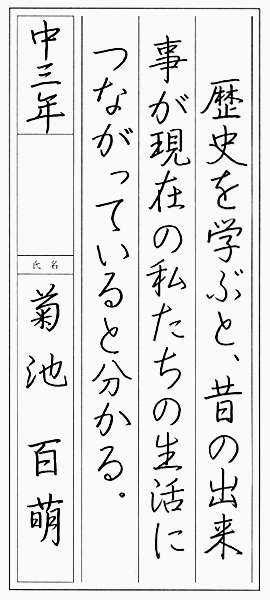 歴史を学ぶと、昔の出来
事が現在の私たちの生活に
つながっていると分かる。
中三年
氏名
菊池 百萌